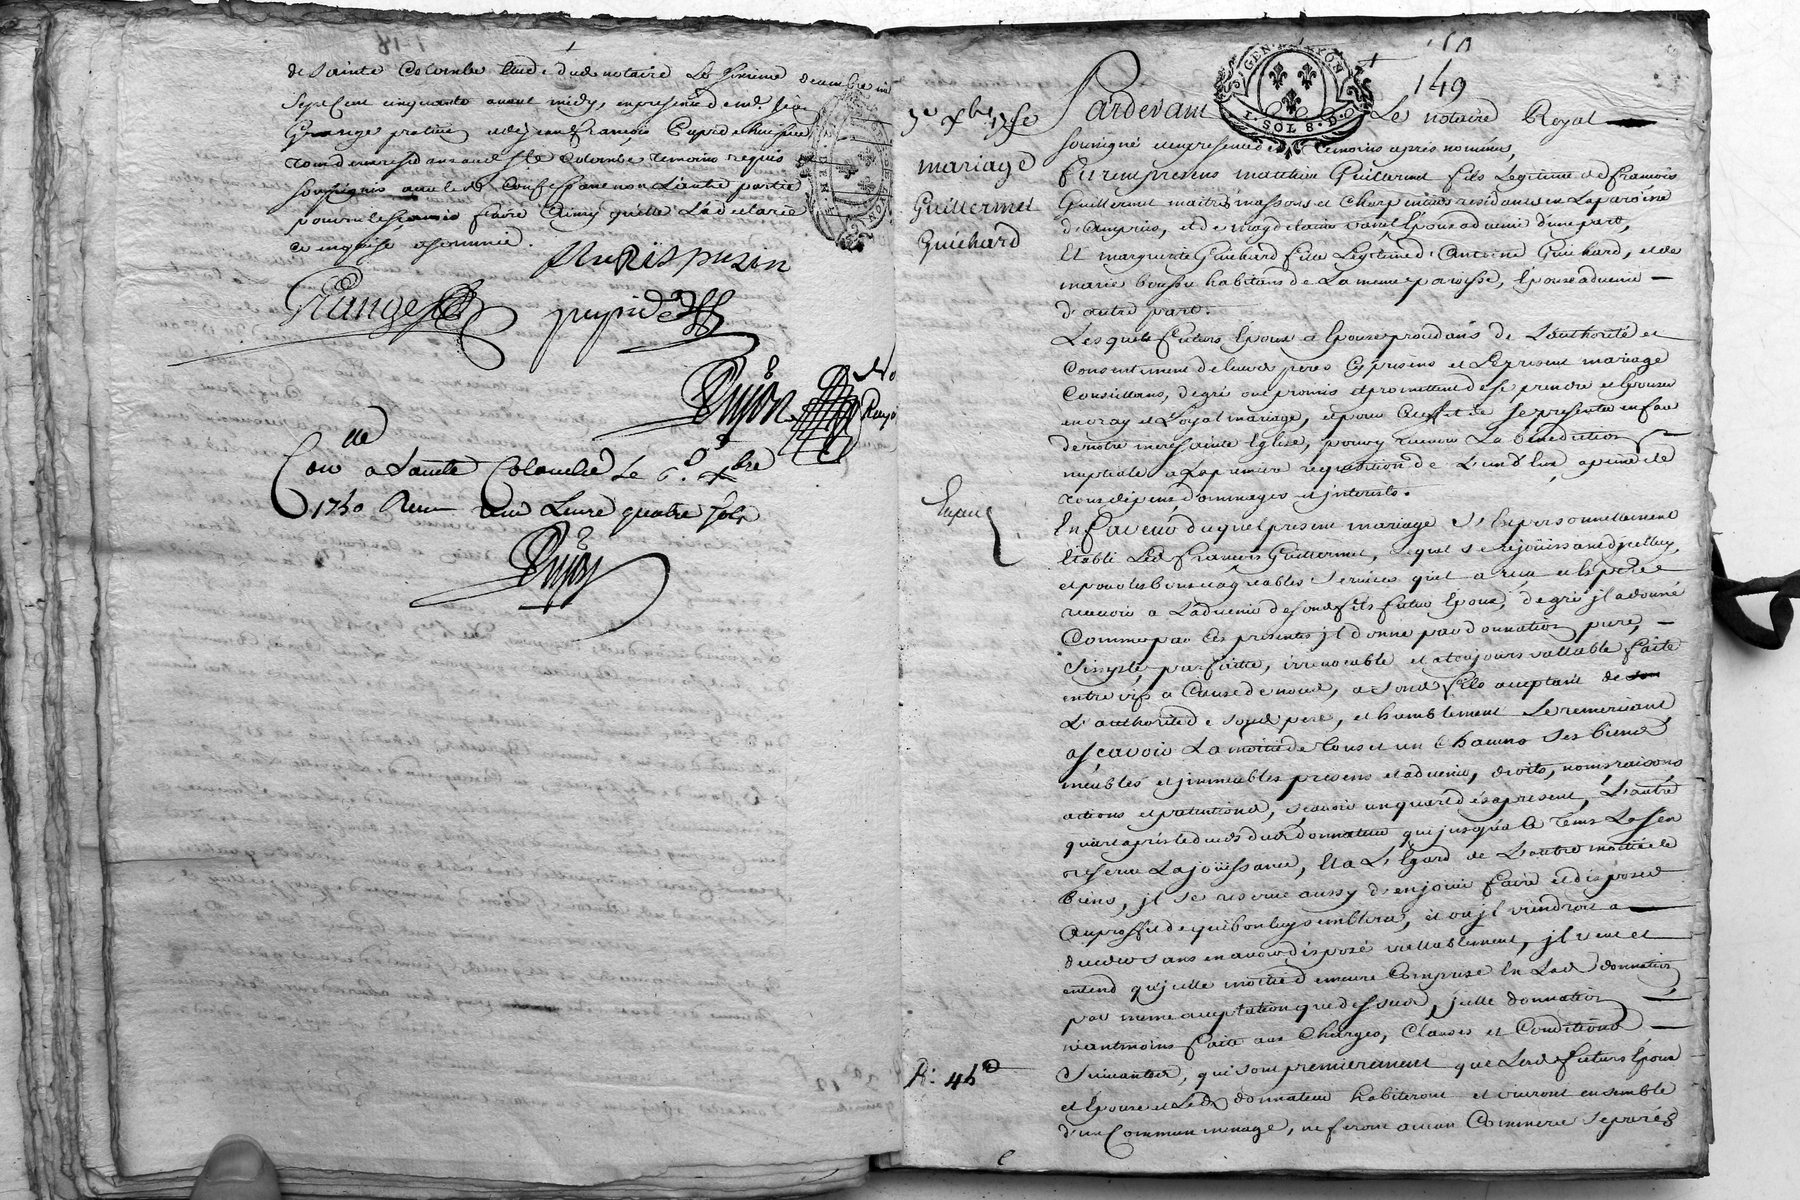 de Sainte Colombe Etude dud notaire Le sixieme decembre mil
Sept Cent cinquante avant midy, en presence de me. 
Grange praticien et de jean francois Pupide huissier
tous demeurant aud Ste Colombe temoins requis
soussignés avec led confessant non Lautre partie
pour ne le scavoir faire Ainsy qu'elle L'a declaré
de ce enquise et sommée.
Grange
pupide
Dujon
Roy
Con.lle a Sainte Colombe Le 6e Xbre
1750 Receu une Livre quatre sols
Dujon
149
SIGEN. LYON
1. SOL 8. D.
7e Xbre 1750
mariage
Guillermet
Guichard
Pardevant Le notaire Royal
soussigné et en presence des temoins apres nommés,
furent presens matthieu Guillermet fils Legitime de francois
Guillermet maitre massons et Charpentier residants en La paroisse
d'ampuis, et de magdelaine Epoux advenir d'une part,
Et marguerite Guichard fille Legitime d'Antoine Guichard, et de
marie boussu habitans de La meme paroisse, Epouse advenir
d'autre part.
Lesquels futurs Epoux et Epouse procedans de L'authorité et
Consentement de leurs peres Cy presens et Le present mariage
Conseillans, de gré ont promis et promettent de se prendre et Epouser
en vray et Loyal mariage, et pour Cet effet de se presenter en face
de notre mere Sainte Eglise, pour y recevoir La benediction
nuptiale a La premiere requisition de L'un d'Eux, a peine de
tous depens dommages et interets.
En faveur duquel present mariage s'est personnellement
Etabli Led francois Guillermet, Lequel se rejouissant d'icelluy
et pour les bons et agreables services qu'il a receu et Espere
recevoir a L'advenir de sond fils futur Epoux, de gré jl a donné
Comme par Ces presentes jl donne par donnation pure,
simple, parfaite, irrevocable et a toujours vallable faite
entre vifs a Cause de noces, a sond fils acceptant de
L'authorité de sond pere, et humblement Le remerciant
asçavoir La moitié de tous et un Chacuns ses biens
meubles et jmmeubles presens et advenir, droits, noms raisons
actions et pretentions, sçavoir un quart dès a present, L'autre
quart apres le deces dud donnateur qui jusqu'a Ce tems Le s'en
reserve La joüissance, Et a L'Egard de L'autre moitié de
biens, jl se reserve aussy d'en jouir faire et disposer
au proffit de qui bon luy semblera, et ou jl viendroit a
deceder sans en avoir disposé vallablement, jl veut et
entend qu'icelle moitié demeure Comprise En Lad donnation
par meme acceptation que dessus, jcelle donnation
neantmoins faite aux Charges, Clauses et Conditions
suivantes, qui sont premierement que Lesd futurs Epoux
et Epouse et Led donnateur habiteront et vivront ensemble
d'un Commun menage, ne feront aucun Commerce separés